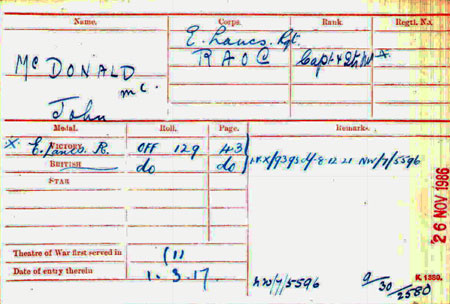 Name. Corps. Rank. Regtl. No.
E. Lancs. Rgt.
McDONALD R A O C Capt & Qr Mr X
mc.
John
Medal. Roll. Page. Remarks.
X VICTORY E. Lancs. R. OFF 129 43
BRITISH do do
STAR
Theatre of War first served in (1)
Date of entry therein 1.3.17.
NW/7/5596 9/30/2580 K. 1380.
26 NOV 1986